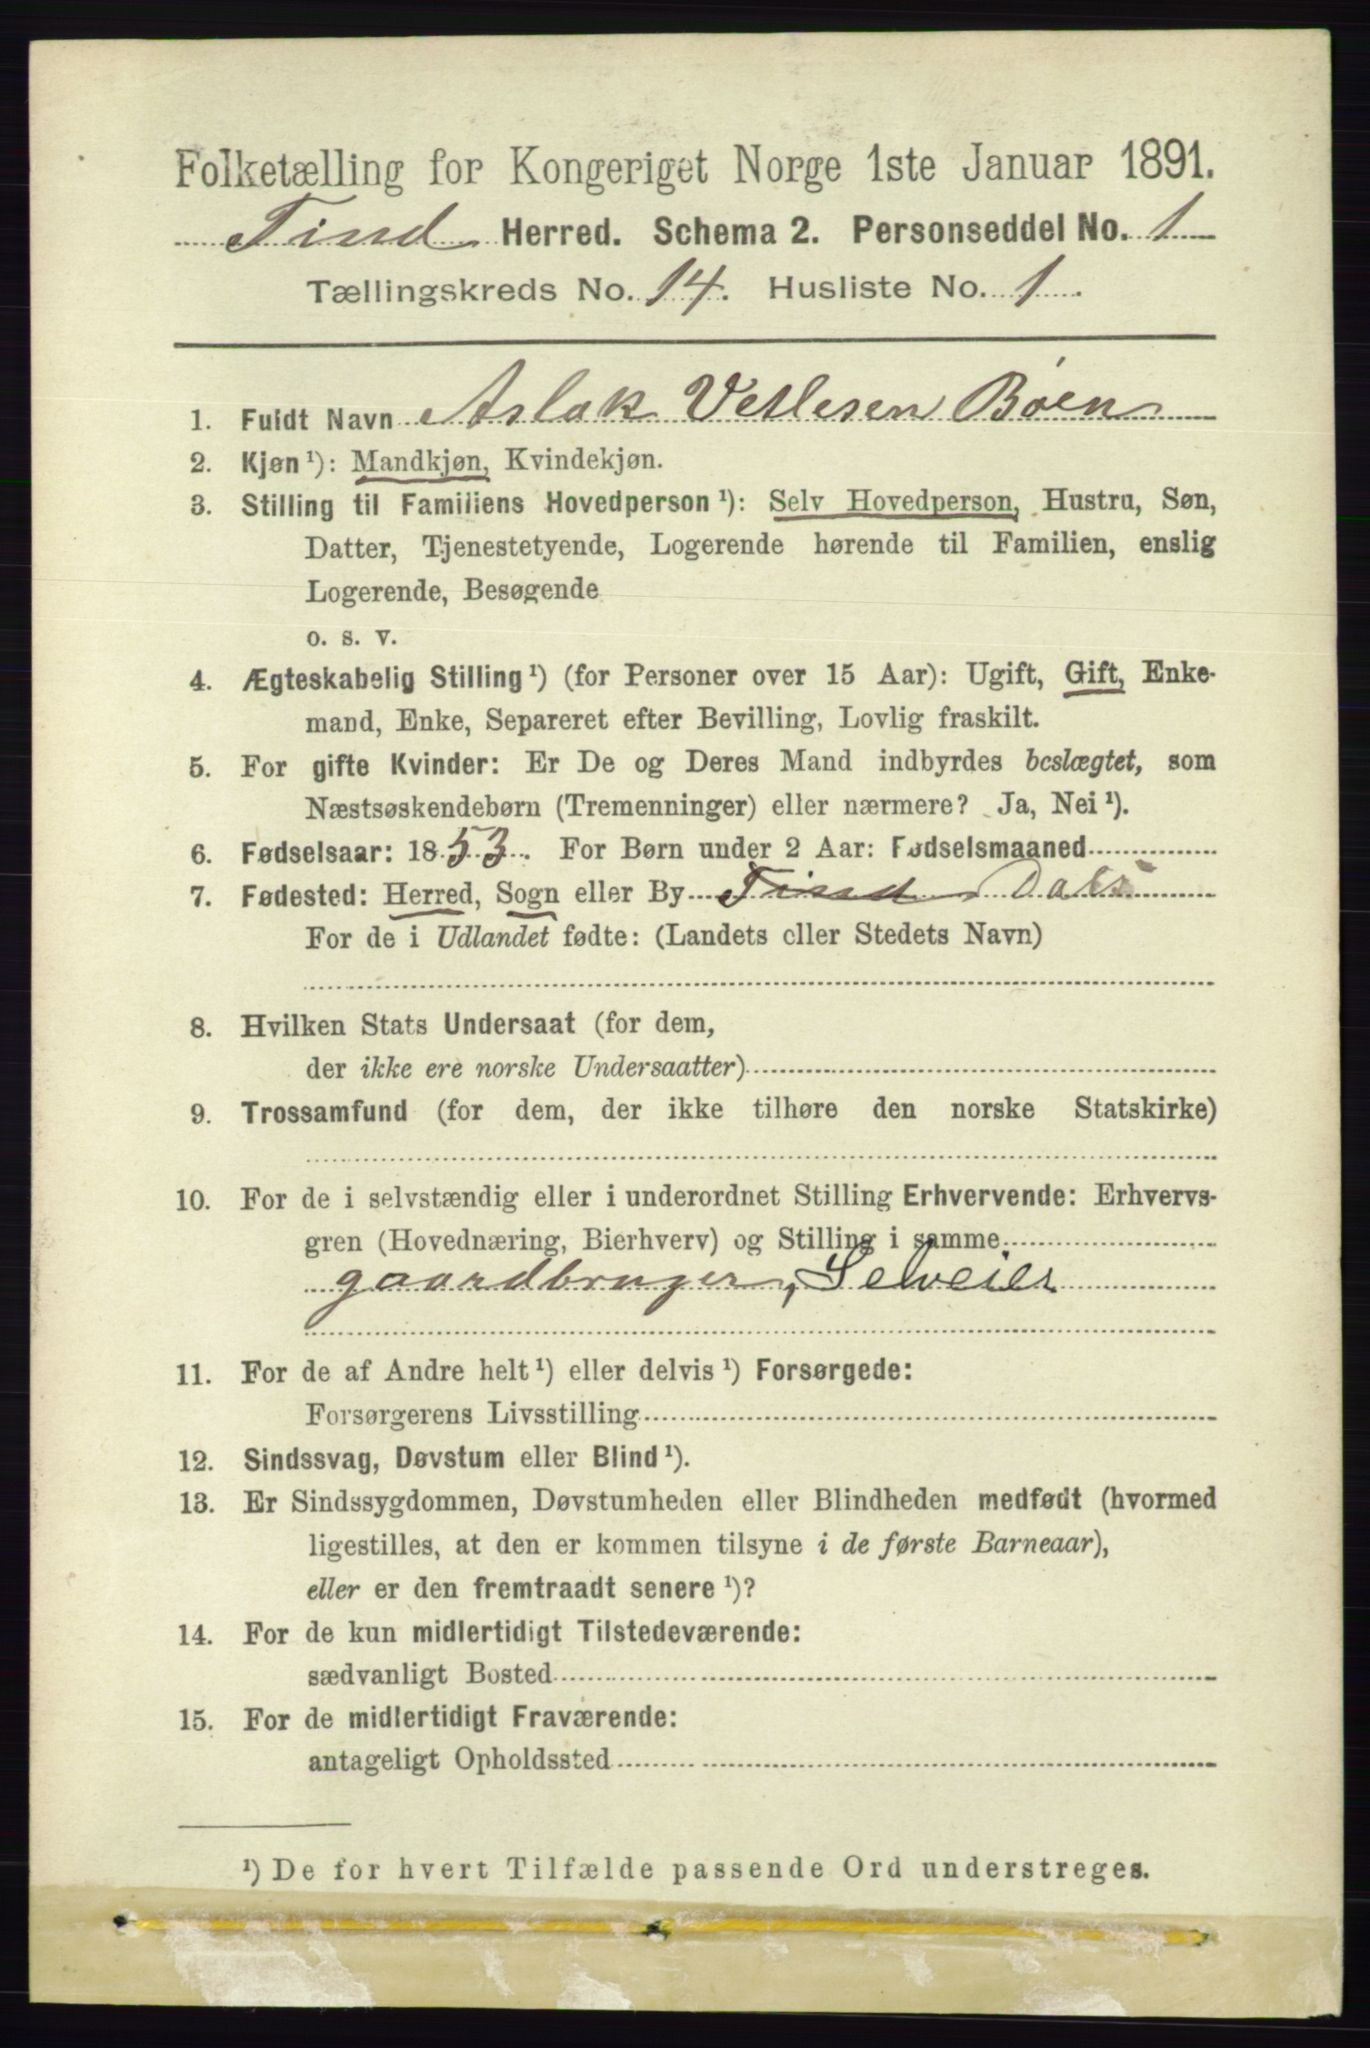 Folketælling for Kongeriget Norge 1ste Januar 1891.
Tind Herred. Schema 2. Personseddel No. 1
Tællingskreds No. 14. Husliste No. 1.
1. Fuldt Navn Aslak Vetlesen Bøen
2. Kjøn¹): Mandkjøn, Kvindekjøn.
3. Stilling til Familiens Hovedperson¹): Selv Hovedperson, Hustru, Søn,
Datter, Tjenestetyende, Logerende hørende til Familien, enslig
Logerende, Besøgende
o. s. v.
4. Ægteskabelig Stilling¹) (for Personer over 15 Aar): Ugift, Gift, Enke-
mand, Enke, Separeret efter Bevilling, Lovlig fraskilt.
5. For gifte Kvinder: Er De og Deres Mand indbyrdes beslægtet, som
Næstsøskendebørn (Tremenninger) eller nærmere? Ja, Nei¹).
6. Fødselsaar: 1853. For Børn under 2 Aar: Fødselsmaaned
7. Fødested: Herred, Sogn eller By Tind Dals
For de i Udlandet fødte: (Landets eller Stedets Navn)
8. Hvilken Stats Undersaat (for dem,
der ikke ere norske Undersaatter)
9. Trossamfund (for dem, der ikke tilhøre den norske Statskirke)
10. For de i selvstændig eller i underordnet Stilling Erhvervende: Erhvervs-
gren (Hovednæring, Bierhverv) og Stilling i samme.
gaardbruger, Selveier
11. For de af Andre helt¹) eller delvis¹) Forsørgede:
Forsørgerens Livsstilling
12. Sindssvag, Døvstum eller Blind¹).
13. Er Sindssygdommen, Døvstumheden eller Blindheden medfødt (hvormed
ligestilles, at den er kommen tilsyne i de første Barneaar),
eller er den fremtraadt senere¹)?
14. For de kun midlertidigt Tilstedeværende:
sædvanligt Bosted
15. For de midlertidigt Fraværende:
antageligt Opholdssted
¹) De for hvert Tilfælde passende Ord understreges.